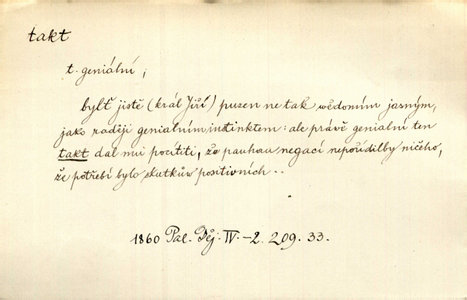 takt
t. geniální;
bylť jistě (král Jiří) puzen ne tak wědomím jasným,
jako raději genialním instinktem: ale právě genialní ten
takt dal mu pocítiti, že pauhau negací nepořídilby ničeho,
že potřebí bylo skutkůw positivních..
1860 Pal. Děj. IV.-2. 209. 33.